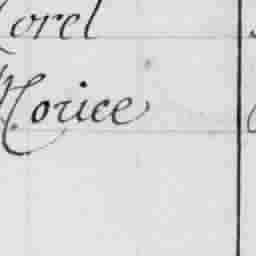 Morel
Morice